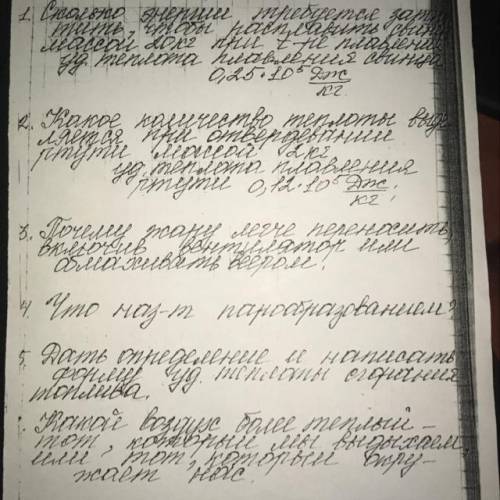 1. Сколько энергии требуется затра
тить, чтобы расплавить свинец
массой 20кг при t-ре плавления
уд. теплота плавления свинца
0,25·10⁵ Дж/кг
2. Какое количество теплоты выде
ляется при отвердевании
ртути массой 2кг
уд. теплота плавления
ртути 0,12·10⁵ Дж/кг.
3. Почему жару легче переносить,
включив вентилятор или
обмахивать веером.
4. Что наз-т парообразованием?
5. Дать определение и написать
форму уд. теплоты сгорания
топлива.
Какой воздух более теплый –
тот, который мы выдыхаем,
или тот, который окру-
жает нас.